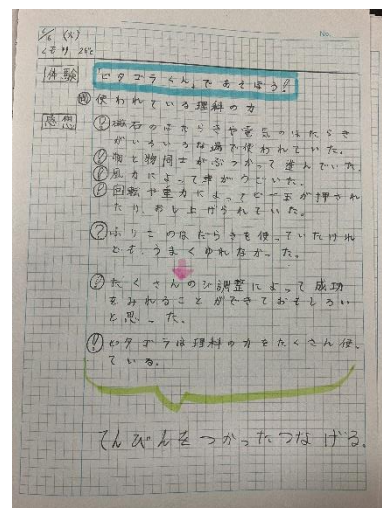 No.
5/6 (火)
くもり 22℃
体験
「ピタゴラくん」であそぼう!
使われている理科の力
感想
磁石のはたらきや電気のはたらき
がいろいろな場で使われていた。
物と物同士がぶつかって進んでいた。
風力によって車がうごいた。
回転や重力によってビー玉が押され
たり、おし上げられていた。
ふりこのはたらきを使っていたけれ
ども、うまくゆれなかった。
たくさんの調整によって成功
をみれることができておもしろい
と思った。
ピタゴラは理科の力をたくさん使っ
ている。
てんびんをつかったつなげる。